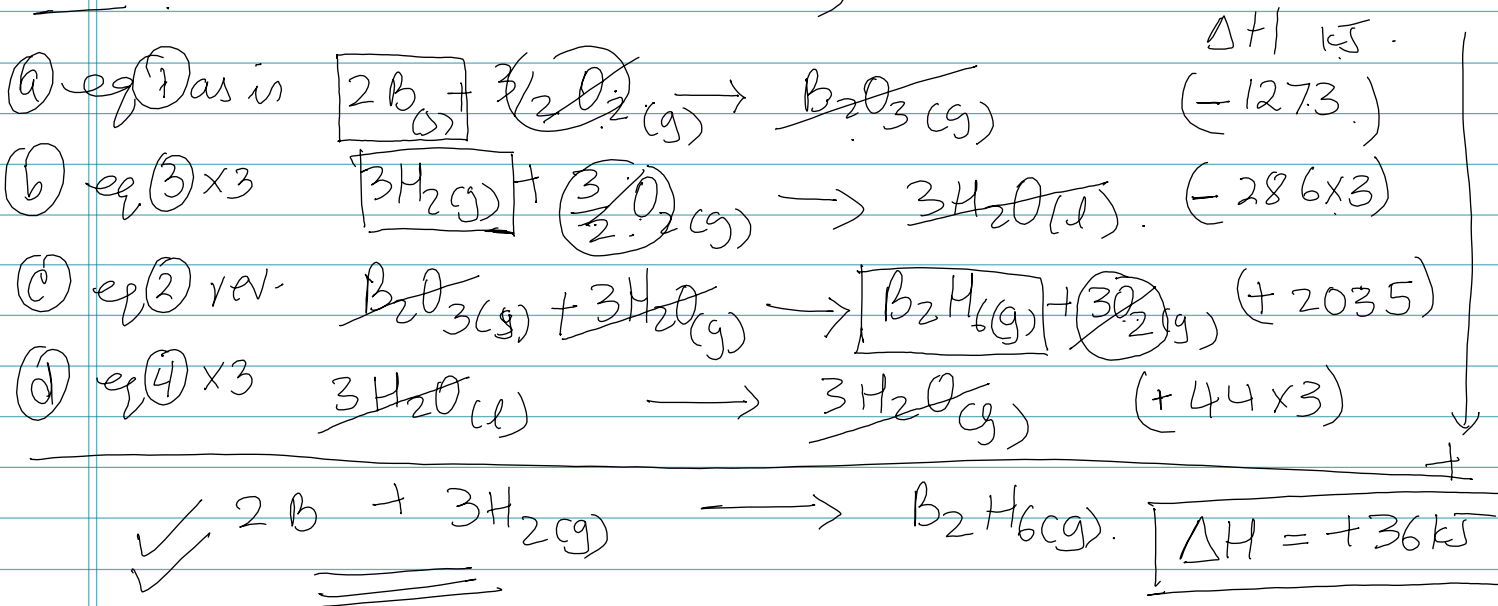 ΔH kJ.
ⓐ eq ① as is 2B(s) + 3/2 O₂(g) → B₂O₃(g) (-1273.)
ⓑ eq ③ ×3 3H₂(g) + 3/2 O₂(g) → 3H₂O(l). (-286×3)
ⓒ eq ② rev. B₂O₃(s) + 3H₂O(g) → B₂H₆(g) + 3O₂(g) (+2035)
ⓓ eq ④ ×3 3H₂O(l) → 3H₂O(g) (+44×3)
+
2B + 3H₂(g) → B₂H₆(g). ΔH = +36 kJ